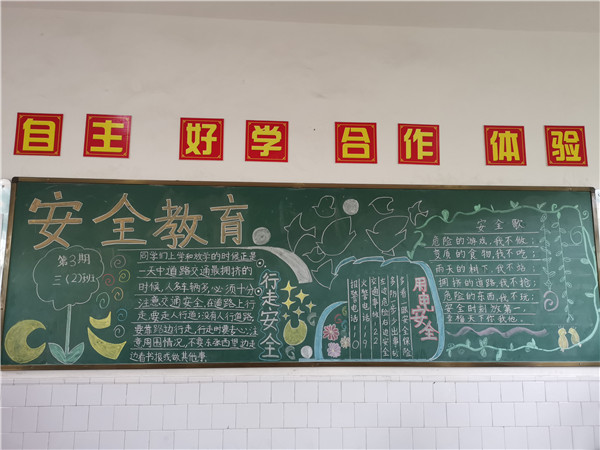 自主 好学 合作 体验
安全教育
第3期
三(2)班
同学们上学和放学的时候正是
一天中道路交通最拥挤的
时候,人多车辆多,必须十分
注意交通安全,在道路上行
走,要走人行道;没有人行道路
要靠路边行走,行走时要专心;注
意周围情况,不要东张西望边走
边看书报或做其他事.
行走安全
用电安全
交通事故122
火警电话119
报警电话110
安全歌
危险的游戏,我不做;
变质的食物,我不吃;
雨天的树下,我不站;
拥挤的道路,我不抢;
危险的东西,我不玩;
安全时刻放第一,